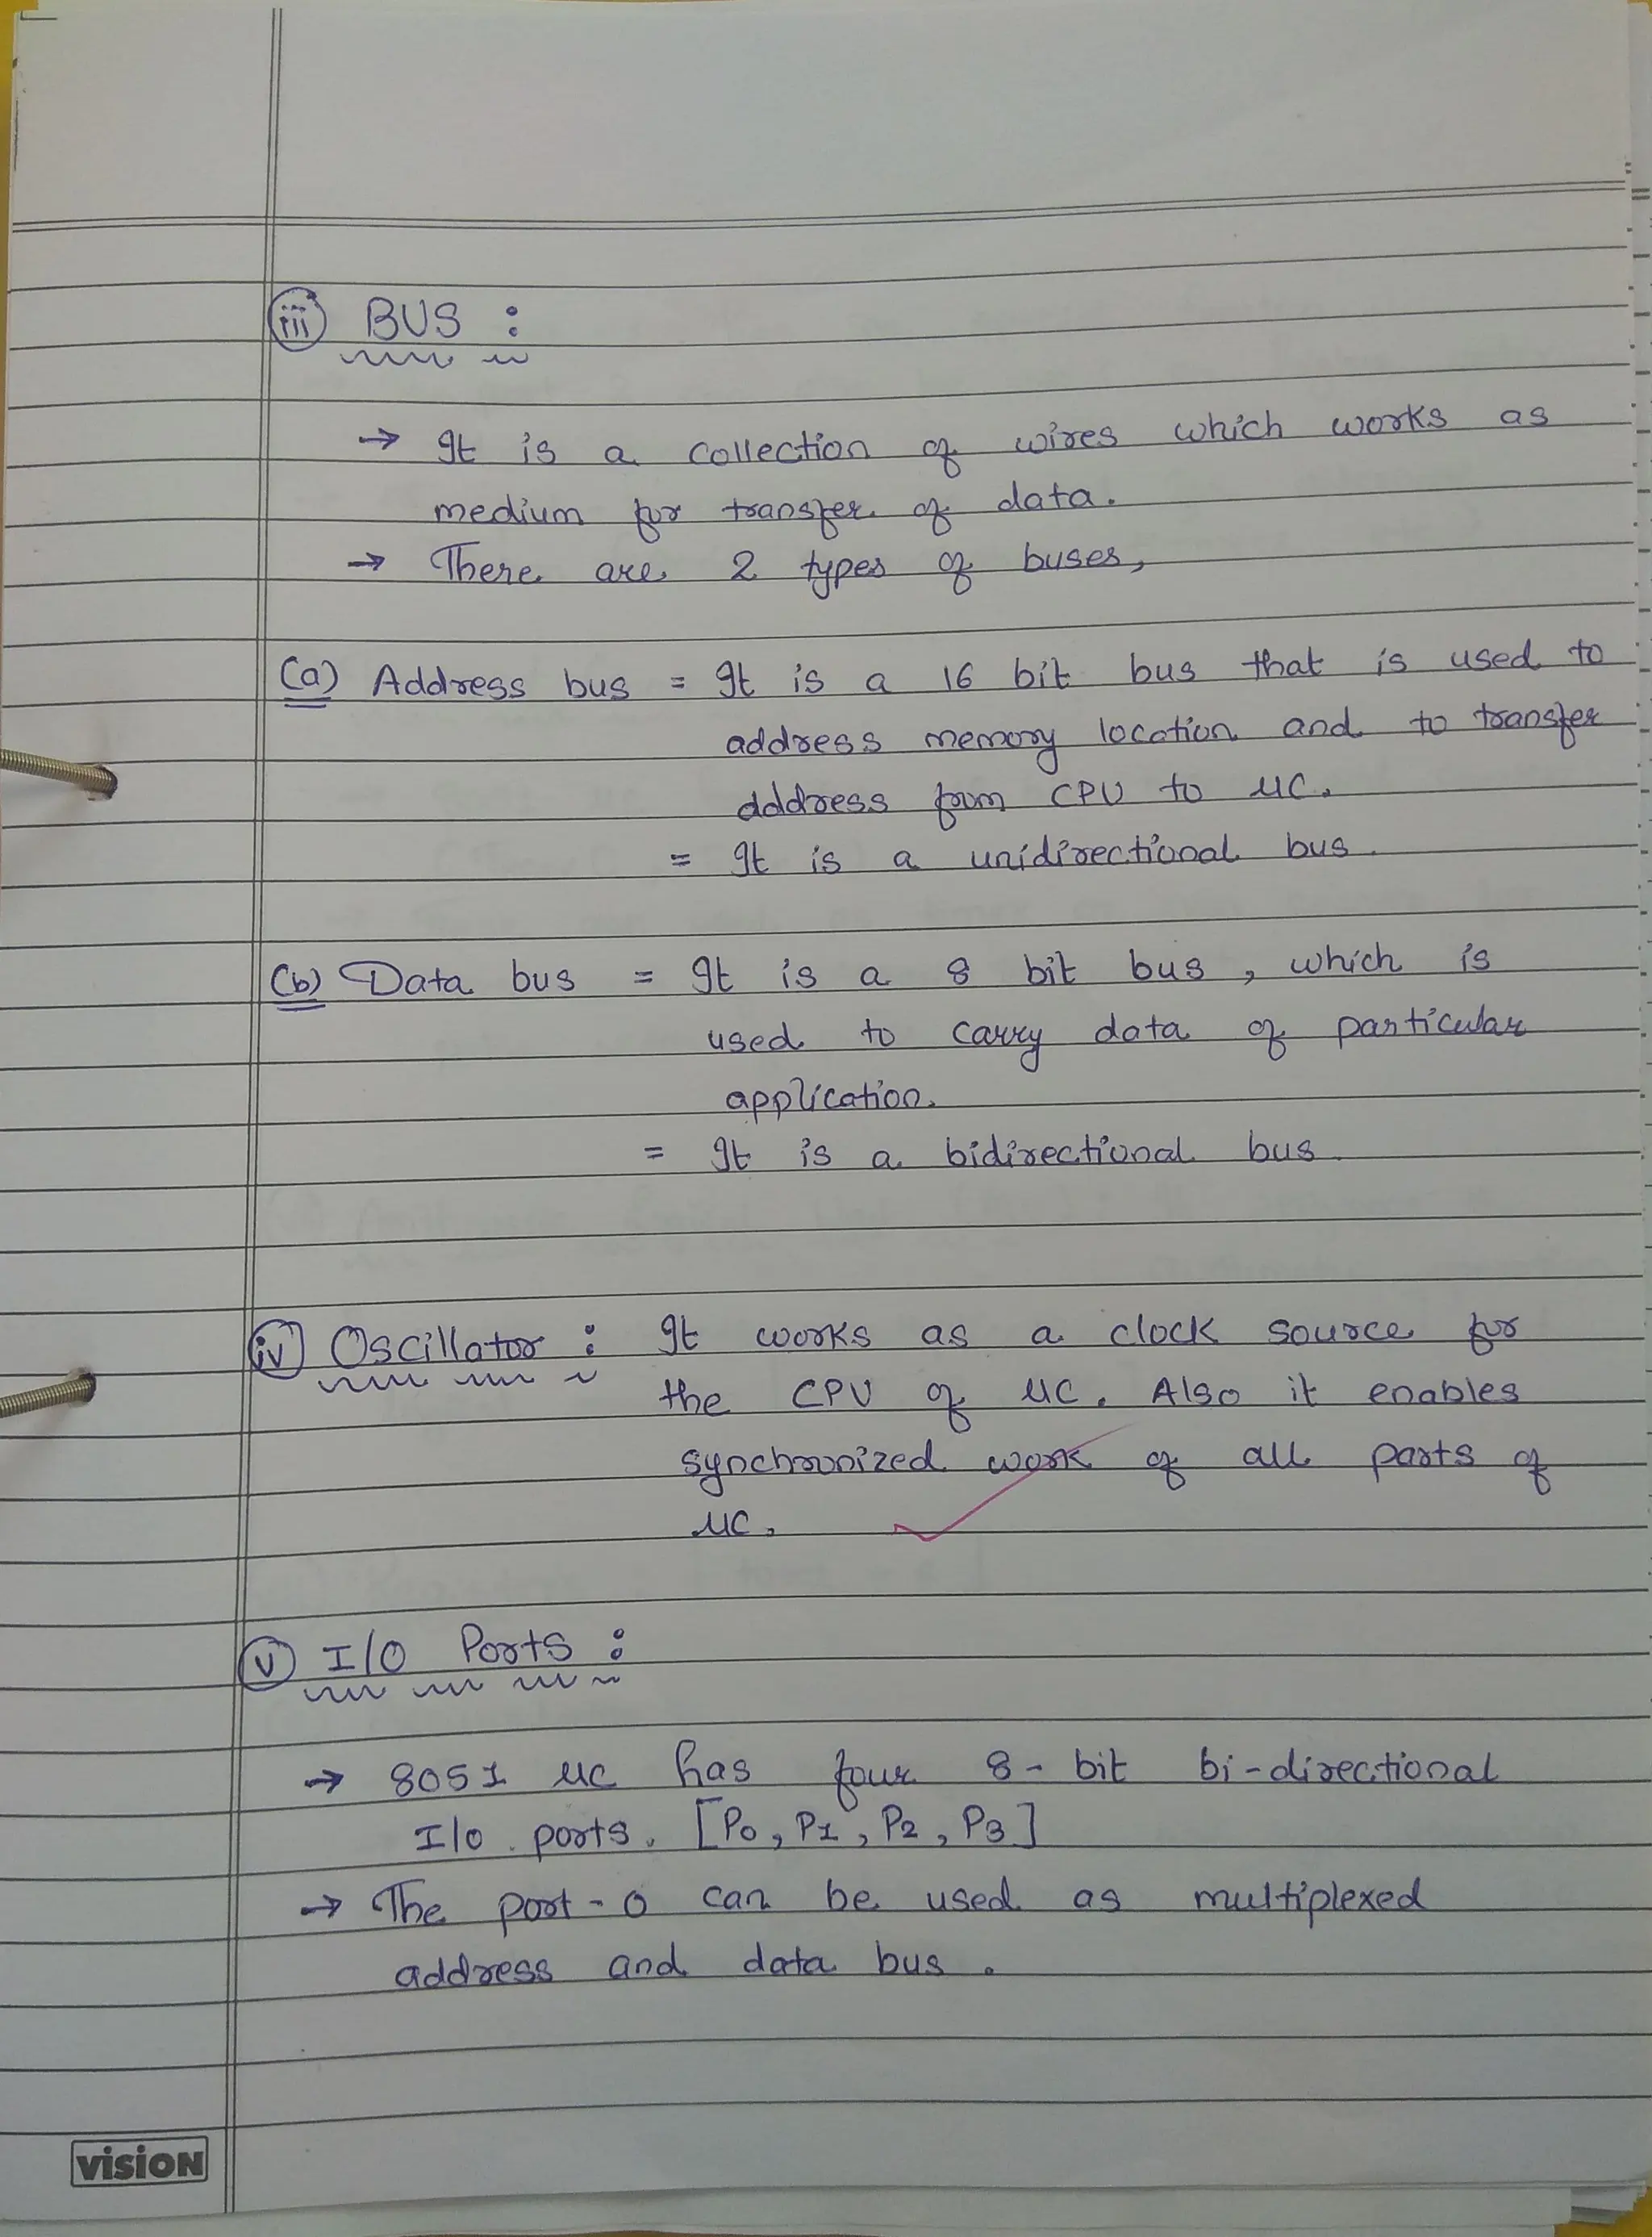 (iii) BUS :
→ It is a collection of wires which works as
medium for transfer of data.
→ There are 2 types of buses,
(a) Address bus = It is a 16 bit bus that is used to
address memory location and to transfer
address from CPU to μC.
= It is a unidirectional bus.
(b) Data bus = It is a 8 bit bus, which is
used to carry data of particular
application.
= It is a bidirectional bus
(iv) Oscillator : It works as a clock source for
the CPU of μC. Also it enables
synchronized work of all parts of
μC.
(v) I/O Ports :
→ 8051 μC has four 8-bit bi-directional
I/O ports. [P0, P1, P2, P3]
→ The port-0 can be used as multiplexed
address and data bus.
vision